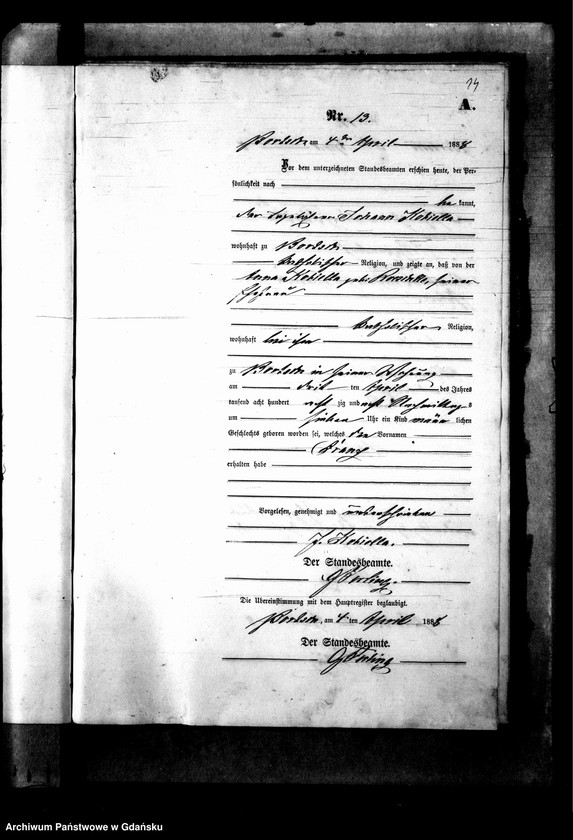 A.
Nr. 13.
am 4ten April 1888
Vor dem unterzeichneten Standesbeamten erschien heute, der Per-
sönlichkeit nach
be kannt,
der Johann
wohnhaft zu
katholischer Religion, und zeigte an, daß von der
Anna geb. seiner
Ehefrau
katholischer Religion,
wohnhaft bei ihm
zu in seiner Wohnung
am drei ten April des Jahres
tausend acht hundert acht zig und acht Nachmittags
um sieben Uhr ein Kind männ lichen
Geschlechts geboren worden sei, welches den Vornamen
Franz
erhalten habe
Vorgelesen, genehmigt und unterschrieben
J.
Der Standesbeamte.
Die Übereinstimmung mit dem Hauptregister beglaubigt.
am 4 ten April 1888
Der Standesbeamte.
Archiwum Państwowe w Gdańsku